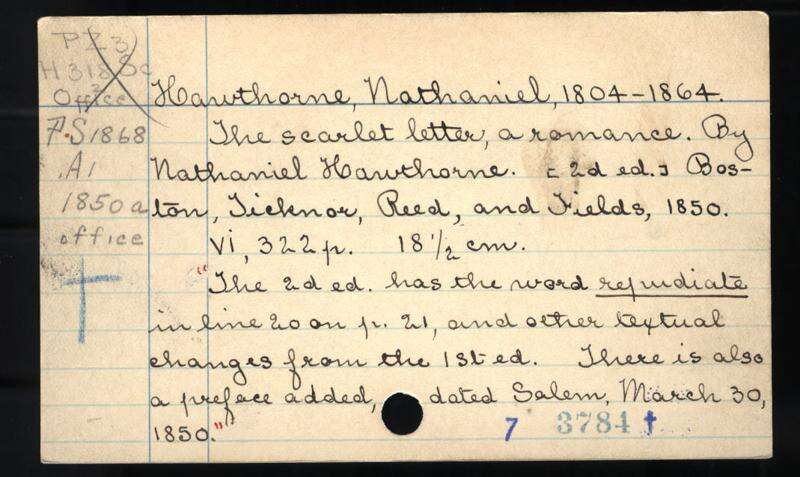 PZ3
H318Sc
3
Office
PS1868
.A1
1850a
office
Hawthorne, Nathaniel, 1804-1864.
The scarlet letter, a romance. By
Nathaniel Hawthorne. [2d ed.] Bos-
ton, Ticknor, Reed, and Fields, 1850.
vi, 322 p. 18 1/2 cm.
"The 2d ed. has the word repudiate
in line 20 on p. 21, and other textual
changes from the 1st ed. There is also
a preface added, dated Salem, March 30,
1850."
7 3784 †